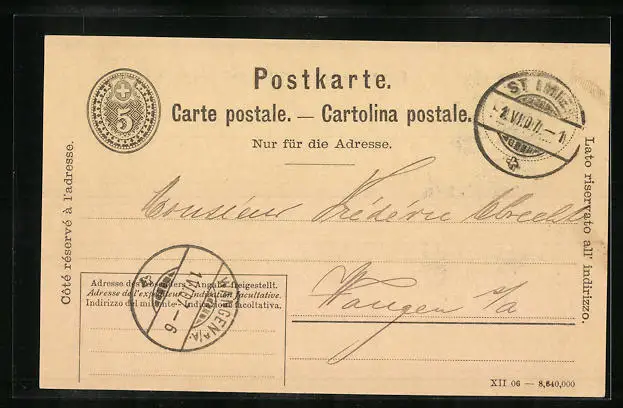 5
Postkarte.
Carte postale. — Cartolina postale.
Nur für die Adresse.
ST IMIER
Côté réservé à l'adresse.
Lato riservato all' indirizzo.
Monsieur Frédéric
Wangen s/a
Adresse des Absenders - Angabe freigestellt.
Adresse de l'expéditeur - Indication facultative.
Indirizzo del mittente - Indicazione facoltativa.
WANGEN A/A.
XII 06 — 8,640,000